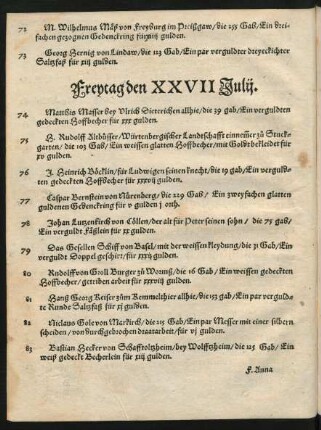 72 M. Wilhelmus Mäß von Freyburg im Preißgaw/die 255 Gab/Ein drei-
fachen gezognen Gedenckring für xiiij gulden.
73 Georg Hernig von Lindaw/die 123 Gab/Ein par verguldter dreyeckichter
Saltzfaß für xij gulden.
Freytag den XXVII Julij.
74 Matthis Masser bey Ulrich Dieterichen allhie/die 39 gab/Ein verguldten
gedeckten Hoffbecher für xxx gulden.
75 H. Rudolff Altbüsser/Würtenbergischer Landtschafft einnemer zů Stuck-
garten/die 103 Gab/Ein weissen glatten Hoffbecher/mit Goldt bekleidet für
xv gulden.
76 J. Heinrich Böcklin/für Ludwigen seinen knecht/die 19 gab/Ein verguld-
ten gedeckten Hoffbecher für xxxvij gulden.
77 Caspar Bernstein von Nürenberg/die 229 Gab/Ein zweyfachen glatten
guldenen Gedenckring für v gulden j orth.
78 Johan Lutzenkirch von Cöllen/der alt für Peter seinen sohn/die 75 gab/
Ein verguldt Fäßlein für xx gulden.
79 Das Gesellen Schiff von Basel/mit der weissen kleydung/die 31 Gab/Ein
verguldt Doppel geschirr/für xxiiij gulden.
80 Rudolff von Groll Burger zů Wormß/die 16 Gab/Ein weissen gedeckten
Hoffbecher/getriben arbeit für xxxviij gulden.
81 Hanß Georg Keiser zům Kemmelthier allhie/die 153 gab/Ein par verguld-
te Runde Saltzfaß für xj gulden.
82 Niclaus Gole von Markirch/die 215 Gab/Ein par Messer mit einer silbern
scheiden/von durchgebrochen draat arbeit/für vj gulden.
83 Bastian Hecker von Schafftoltzheim/bey Wolfftzheim/die 125 Gab/Ein
weiß gedeckt Becherlein für xiij gulden.
F. Anna